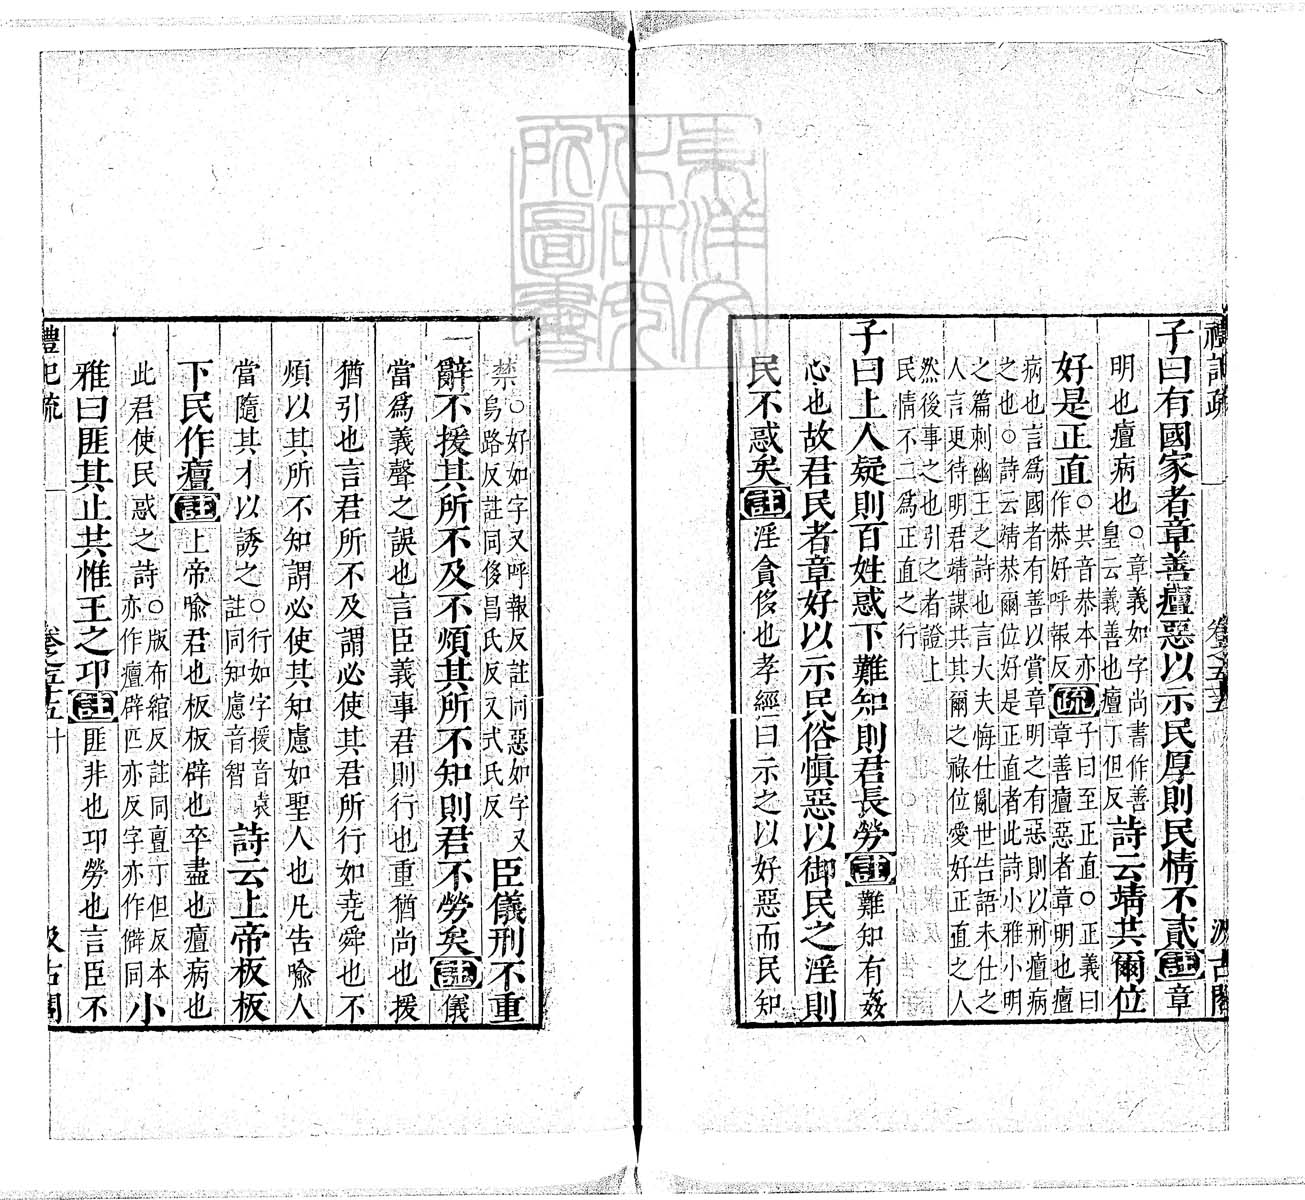 子曰有國家者章善癉惡以示民厚則民情不貳註章
明也癉病也○章義如字尚書作善
皇云義善也癉丁但反
詩云靖共爾位
好是正直
○共音恭本亦
作恭好呼報反
疏
子曰至正直○正義曰
章善癉惡者章明也癉
病也言爲國者有善以賞章明之有惡則以刑癉病
之也○詩云靖恭爾位好是正直者此詩小雅小明
之篇刺幽王之詩也言大夫悔仕亂世告語未仕之
人言更待明君靖謀共其爾之祿位愛好正直之人
然後事之也引之者證上
民情不二爲正直之行
子曰上人疑則百姓惑下難知則君長勞註難知有姦
心也故君民者章好以示民俗愼惡以御民之淫則
民不惑矣註淫貪侈也孝經曰示之以好惡而民知
禁
○好如字又呼報反註同惡如字又
烏路反註同侈昌氏反又式氏反
臣儀刑不重
辭不援其所不及不煩其所不知則君不勞矣註儀
當爲義聲之誤也言臣義事君則行也重猶尚也援
猶引也言君所不及謂必使其君所行如堯舜也不
煩以其所不知謂必使其知慮如聖人也凡告喻人
當隨其才以誘之
○行如字援音袁
註同知慮音智
詩云上帝板板
下民作癉註上帝喻君也板板辟也卒盡也癉病也
此君使民惑之詩
○版布綰反註同亶丁但反本
亦作癉辟匹亦反字亦作僻同
小
雅曰匪其止共惟王之卭註匪非也卭勞也言臣不
禮記疏
卷之五十五
十
汲古閣
東洋文化研究所圖書